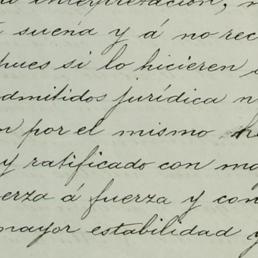 interpretación, n
suena y á no rec
pues si lo hicieren
dmitidos jurídica n
n por el mismo he
y ratificado con ma
erza á fuerza y con
mayor estabilidad y